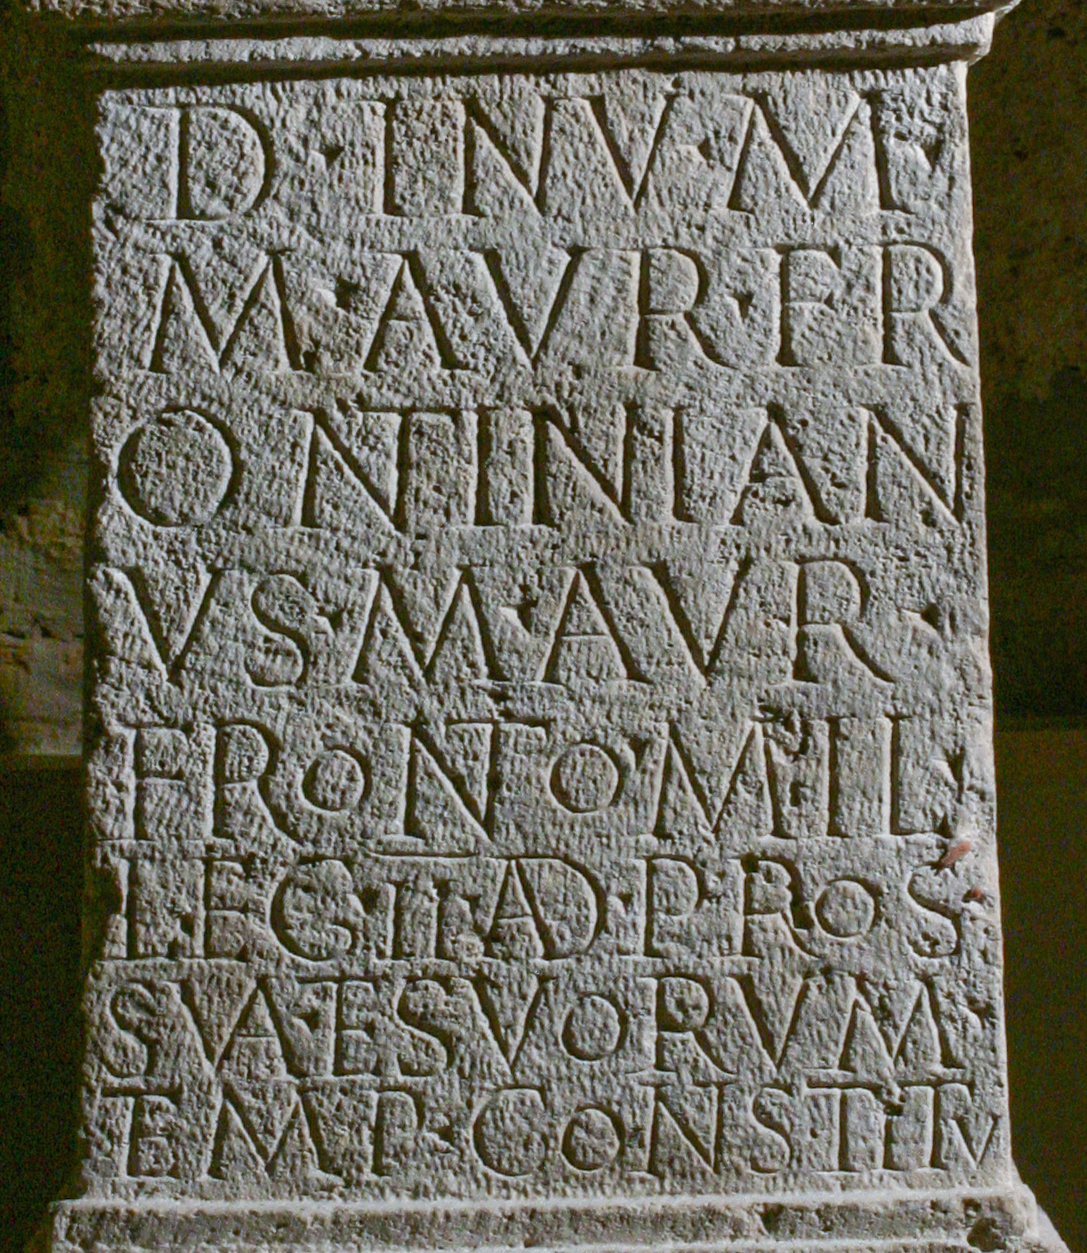 D·INV·M·
M·AVR·FR
ONTINIAN
VS·M·AVR·
FRONTO·MIL·
LEGIIADPROS
SVAESVORVM
TEMP·CONSTITV